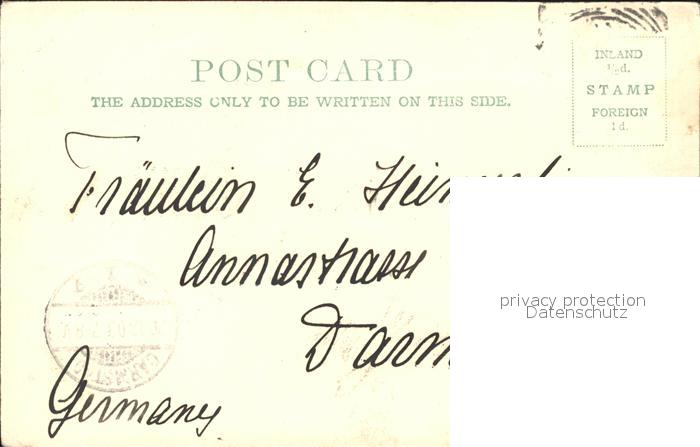 POST CARD
THE ADDRESS ONLY TO BE WRITTEN ON THIS SIDE.
INLAND
½d.
STAMP
FOREIGN
1d.
Fräulein E.
Annastrasse
Darm
Germany
privacy protection
Datenschutz